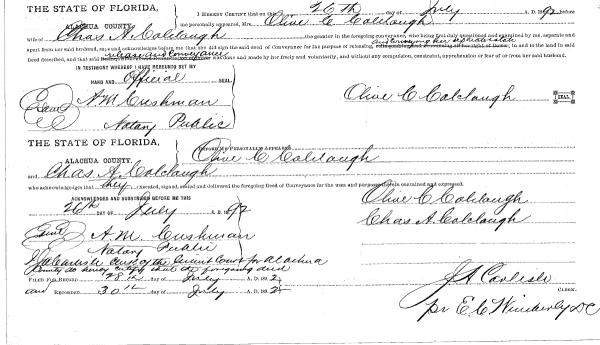 THE STATE OF FLORIDA,
ALACHUA COUNTY.
I HEREBY CERTIFY that on this 26th day of July A. D. 1892 before
me personally appeared, Mrs. Olive C Colclough
wife of Chas A. Colclough the grantor in the foregoing conveyance, who being first duly questioned and examined by me, separate and
apart from her said husband, says and acknowledges before me that she did sign the said deed of Conveyance for the purpose of releasing, and to the land in said
Deed described, and that said release and conveyance was done and made by her freely and voluntarily, and without any compulsion, constraint, apprehension or fear of or from her said husband.
IN TESTIMONY WHEREOF I HAVE HEREUNTO SET MY
HAND AND Official SEAL
Seal A M Cushman
Notary Public
Olive C Colclough SEAL
THE STATE OF FLORIDA,
ALACHUA COUNTY.
BEFORE ME PERSONALLY APPEARED Olive C Colclough
and Chas A. Colclough
who acknowledges that they executed, signed, sealed and delivered the foregoing Deed of Conveyance for the uses and purposes therein contained and expressed.
ACKNOWLEDGED AND SUBSCRIBED BEFORE ME THIS
26th DAY OF July A. D. 1892
Olive C Colclough
Chas A. Colclough
Seal A. M. Cushman
Notary Public
I J A Carlisle Clerk of the Circuit Court for Alachua
County do hereby certify that the foregoing deed
FILED FOR RECORD 28th day of July A. D. 1892
and RECORDED 30th day of July A. D. 1892
J A Carlisle
CLERK.
pr E. C. Wimberly DC